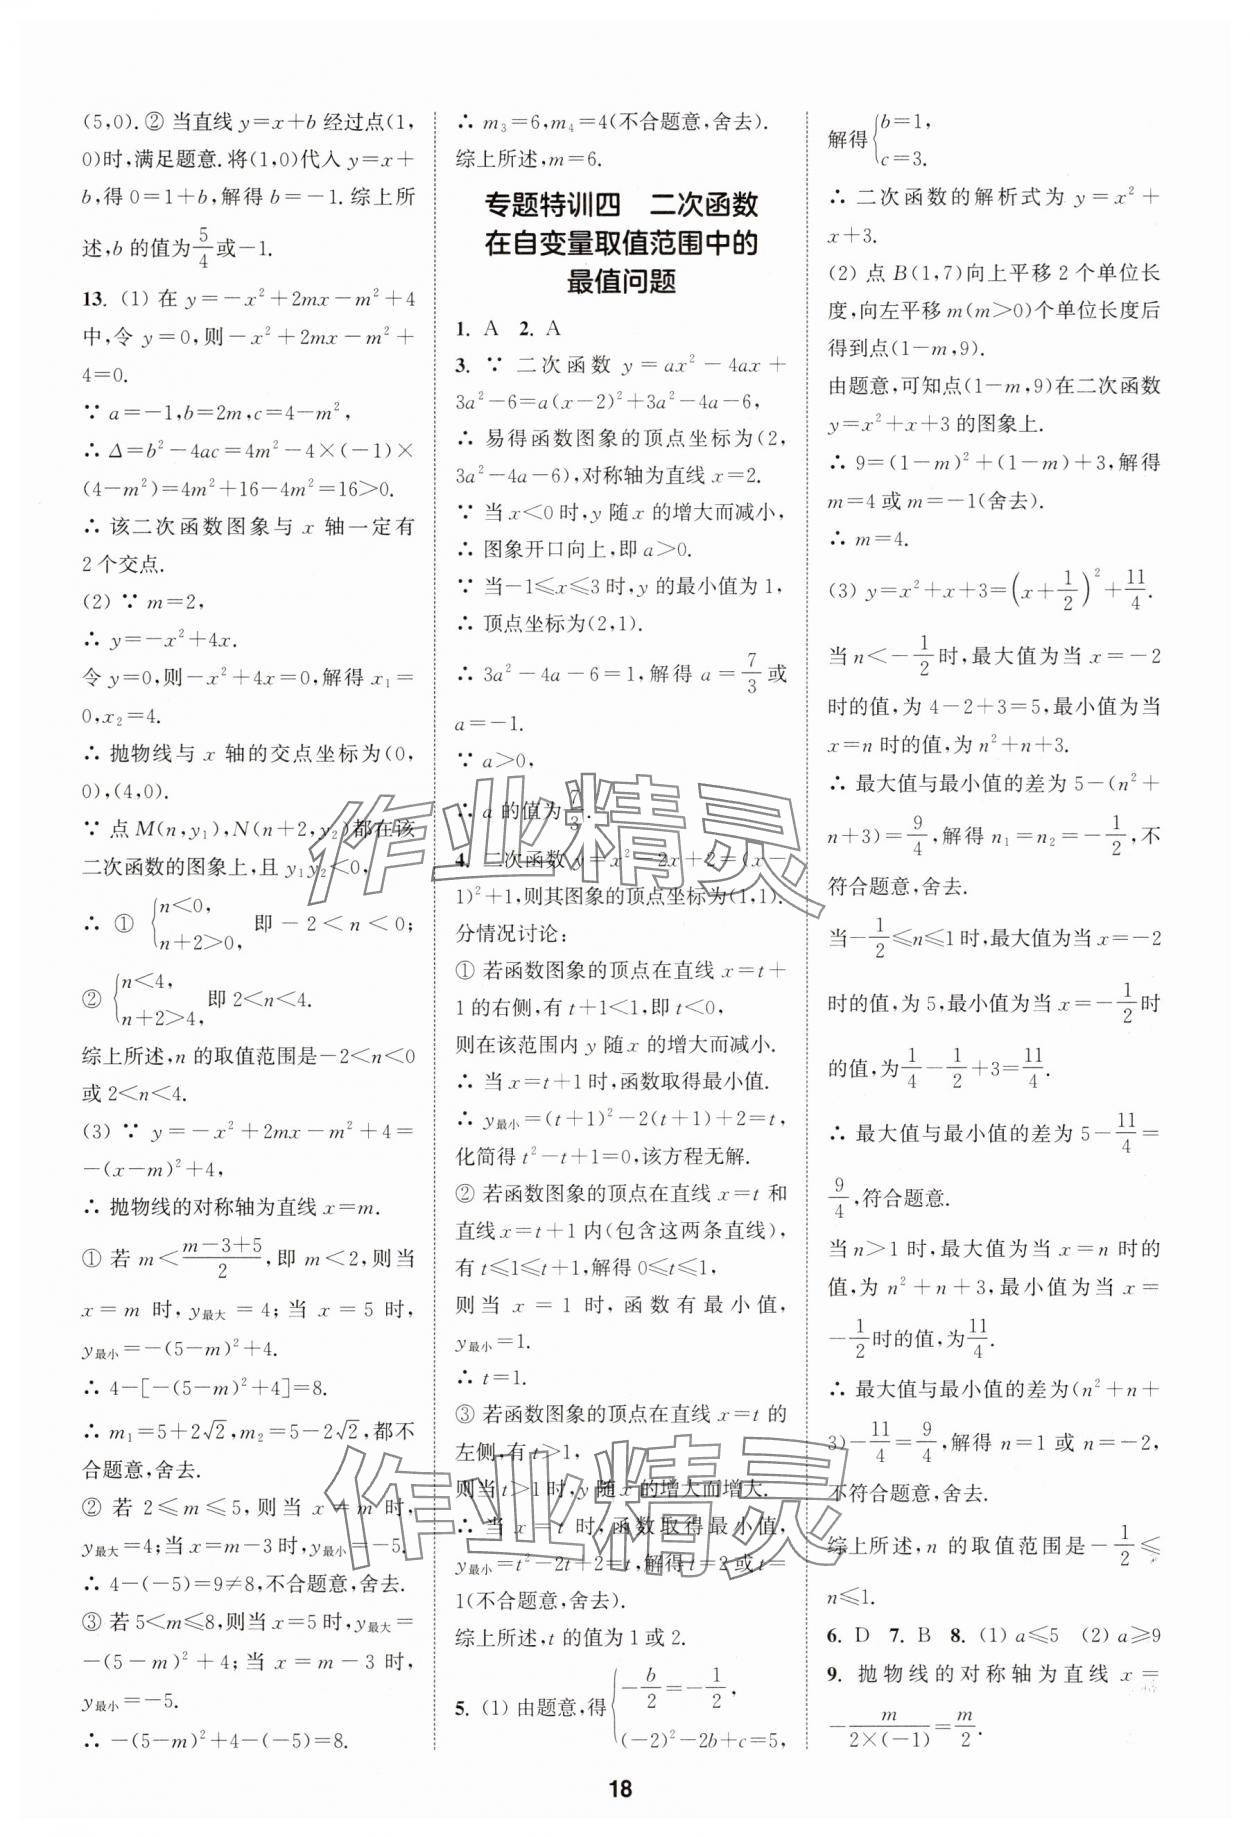 (5,0). ② 当直线 y=x+b 经过点(1,
0)时,满足题意. 将(1,0)代入 y=x+
b,得 0=1+b,解得 b=-1. 综上所
述,b 的值为 5/4 或-1.
13. (1) 在 y=-x²+2mx-m²+4
中,令 y=0,则-x²+2mx-m²+
4=0.
∵ a=-1,b=2m,c=4-m²,
∴ Δ=b²-4ac=4m²-4×(-1)×
(4-m²)=4m²+16-4m²=16>0.
∴ 该二次函数图象与 x 轴一定有
2 个交点.
(2) ∵ m=2,
∴ y=-x²+4x.
令 y=0,则-x²+4x=0,解得 x₁=
0,x₂=4.
∴ 抛物线与 x 轴的交点坐标为(0,
0),(4,0).
∵ 点 M(n,y₁),N(n+2,y₂)都在该
二次函数的图象上,且 y₁y₂<0,
∴ ① {n<0, n+2>0, 即-2<n<0;
② {n<4, n+2>4, 即 2<n<4.
综上所述,n 的取值范围是-2<n<0
或 2<n<4.
(3) ∵ y=-x²+2mx-m²+4=
-(x-m)²+4,
∴ 抛物线的对称轴为直线 x=m.
① 若 m<(m-3+5)/2,即 m<2,则当
x=m 时,y最大=4;当 x=5 时,
y最小=-(5-m)²+4.
∴ 4-[-(5-m)²+4]=8.
∴ m₁=5+2√2,m₂=5-2√2,都不
合题意,舍去.
② 若 2≤m≤5,则当 x=m 时,
y最大=4;当 x=m-3 时,y最小=-5.
∴ 4-(-5)=9≠8,不合题意,舍去.
③ 若 5<m≤8,则当 x=5 时,y最大=
-(5-m)²+4;当 x=m-3 时,
y最小=-5.
∴ -(5-m)²+4-(-5)=8.
∴ m₃=6,m₄=4(不合题意,舍去).
综上所述,m=6.
专题特训四 二次函数
在自变量取值范围中的
最值问题
1. A 2. A
3. ∵ 二次函数 y=ax²-4ax+
3a²-6=a(x-2)²+3a²-4a-6,
∴ 易得函数图象的顶点坐标为(2,
3a²-4a-6),对称轴为直线 x=2.
∵ 当 x<0 时,y 随 x 的增大而减小,
∴ 图象开口向上,即 a>0.
∵ 当-1≤x≤3 时,y 的最小值为 1,
∴ 顶点坐标为(2,1).
∴ 3a²-4a-6=1,解得 a=7/3 或
a=-1.
∵ a>0,
∴ a 的值为 7/3.
4. 二次函数 y=x²-2x+2=(x-
1)²+1,则其图象的顶点坐标为(1,1).
分情况讨论:
① 若函数图象的顶点在直线 x=t+
1 的右侧,有 t+1<1,即 t<0,
则在该范围内 y 随 x 的增大而减小.
∴ 当 x=t+1 时,函数取得最小值.
∴ y最小=(t+1)²-2(t+1)+2=t,
化简得 t²-t+1=0,该方程无解.
② 若函数图象的顶点在直线 x=t 和
直线 x=t+1 内(包含这两条直线),
有 t≤1≤t+1,解得 0≤t≤1,
则当 x=1 时,函数有最小值,
y最小=1.
∴ t=1.
③ 若函数图象的顶点在直线 x=t 的
左侧,有 t>1,
则当 t>1 时,y 随 x 的增大而增大.
∴ 当 x=t 时,函数取得最小值,
y最小=t²-2t+2=t,解得 t=2 或 t=
1(不合题意,舍去).
综上所述,t 的值为 1 或 2.
5. (1) 由题意,得 {-b/2=-1/2, (-2)²-2b+c=5,
解得 {b=1, c=3.
∴ 二次函数的解析式为 y=x²+
x+3.
(2) 点 B(1,7)向上平移 2 个单位长
度,向左平移 m(m>0)个单位长度后
得到点(1-m,9).
由题意,可知点(1-m,9)在二次函数
y=x²+x+3 的图象上.
∴ 9=(1-m)²+(1-m)+3,解得
m=4 或 m=-1(舍去).
∴ m=4.
(3) y=x²+x+3=(x+1/2)²+11/4.
当 n<-1/2 时,最大值为当 x=-2
时的值,为 4-2+3=5,最小值为当
x=n 时的值,为 n²+n+3.
∴ 最大值与最小值的差为 5-(n²+
n+3)=9/4,解得 n₁=n₂=-1/2,不
符合题意,舍去.
当-1/2≤n≤1 时,最大值为当 x=-2
时的值,为 5,最小值为当 x=-1/2 时
的值,为 1/4-1/2+3=11/4.
∴ 最大值与最小值的差为 5-11/4=
9/4,符合题意.
当 n>1 时,最大值为当 x=n 时的
值,为 n²+n+3,最小值为当 x=
-1/2 时的值,为 11/4.
∴ 最大值与最小值的差为(n²+n+
3)-11/4=9/4,解得 n=1 或 n=-2,
不符合题意,舍去.
综上所述,n 的取值范围是-1/2≤
n≤1.
6. D 7. B 8. (1) a≤5 (2) a≥9
9. 抛物线的对称轴为直线 x=
-m/(2×(-1))=m/2.
作业精灵
作业精灵
18